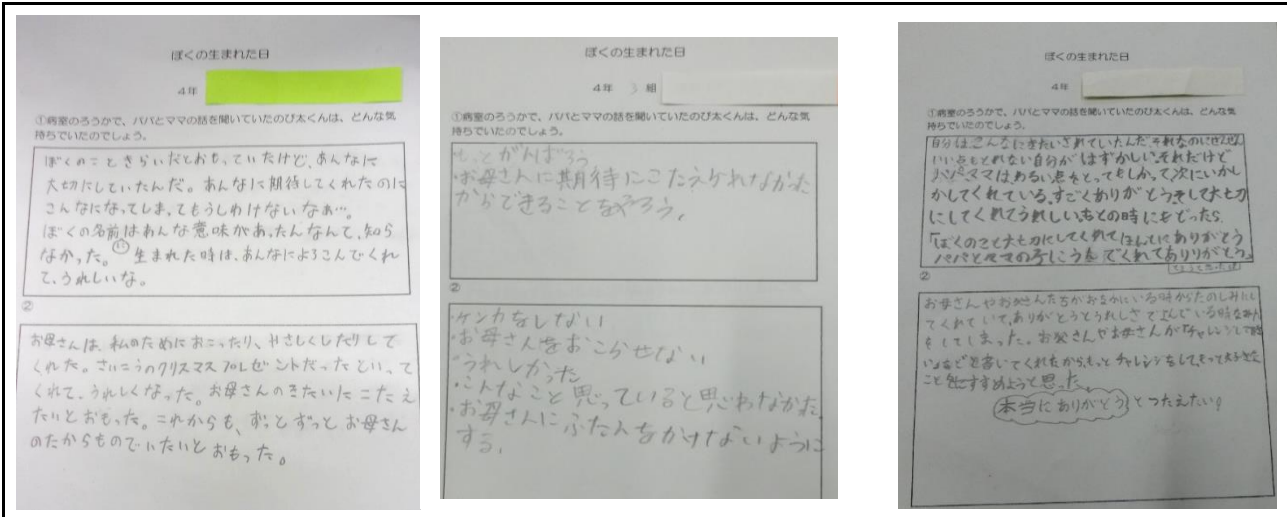 ぼくの生まれた日
4年
①病室のろうかで、パパとママの話を聞いていたのび太くんは、どんな気
持ちでいたのでしょう。
ぼくのこときらいだとおもっていたけど、あんなに
大切にしていたんだ。あんなに期待してくれたのに
こんなになってしまってもうしわけないなあ…。
ぼくの名前はあんな意味があったんなんて、知ら
なかった。生まれた時は、あんなによろこんでくれ
て、うれしいな。
②
お母さんは、私のためにおこったり、やさしくしたりして
くれた。さいこうのクリスマスプレゼントだったといって
くれて、うれしくなった。お母さんのきたいにこたえ
たいとおもった。これからも、ずっとずっとお母さん
のたからものでいたいとおもった。
ぼくの生まれた日
4年 3 組
①病室のろうかで、パパとママの話を聞いていたのび太くんは、どんな気
持ちでいたのでしょう。
もっとがんばろう
・お母さんに期待にこたえケれなかた
からできることをやろう。
②
・ケンカをしない
・お母さんをおこらせない
・うれしかった
・こんなこと思っていると思わなかた
・お母さんにふたんをかけないように
する。
ぼくの生まれた日
4年
①病室のろうかで、パパとママの話を聞いていたのび太くんは、どんな気
持ちでいたのでしょう。
自分はこんなにきたいされていたんだ。それなのにぜんぜん
いい点もとれない自分がはずかしい。それだけど
パパママは、わるい点をとってもしかって次にいかし
かしてくれている。すごくありがとう。そして大切
にしてくれてうれしい。もとの時にもどったら
「ぼくのこと大切にしてくれてほんとにありがとう
パパとママの子にうんでくれてありりがとう。
②
お母さんやお父さんたちがおなかにいる時からたのしみにし
てくれていて、ありがとうとうれしさで
をしてしまった。お父さんやお母さんが「チャレンジして
いなどと書いてくれたから、もっとチャレンジをして、もって
ことをすすめようと思った。
本当にありがとう とつたえたい。